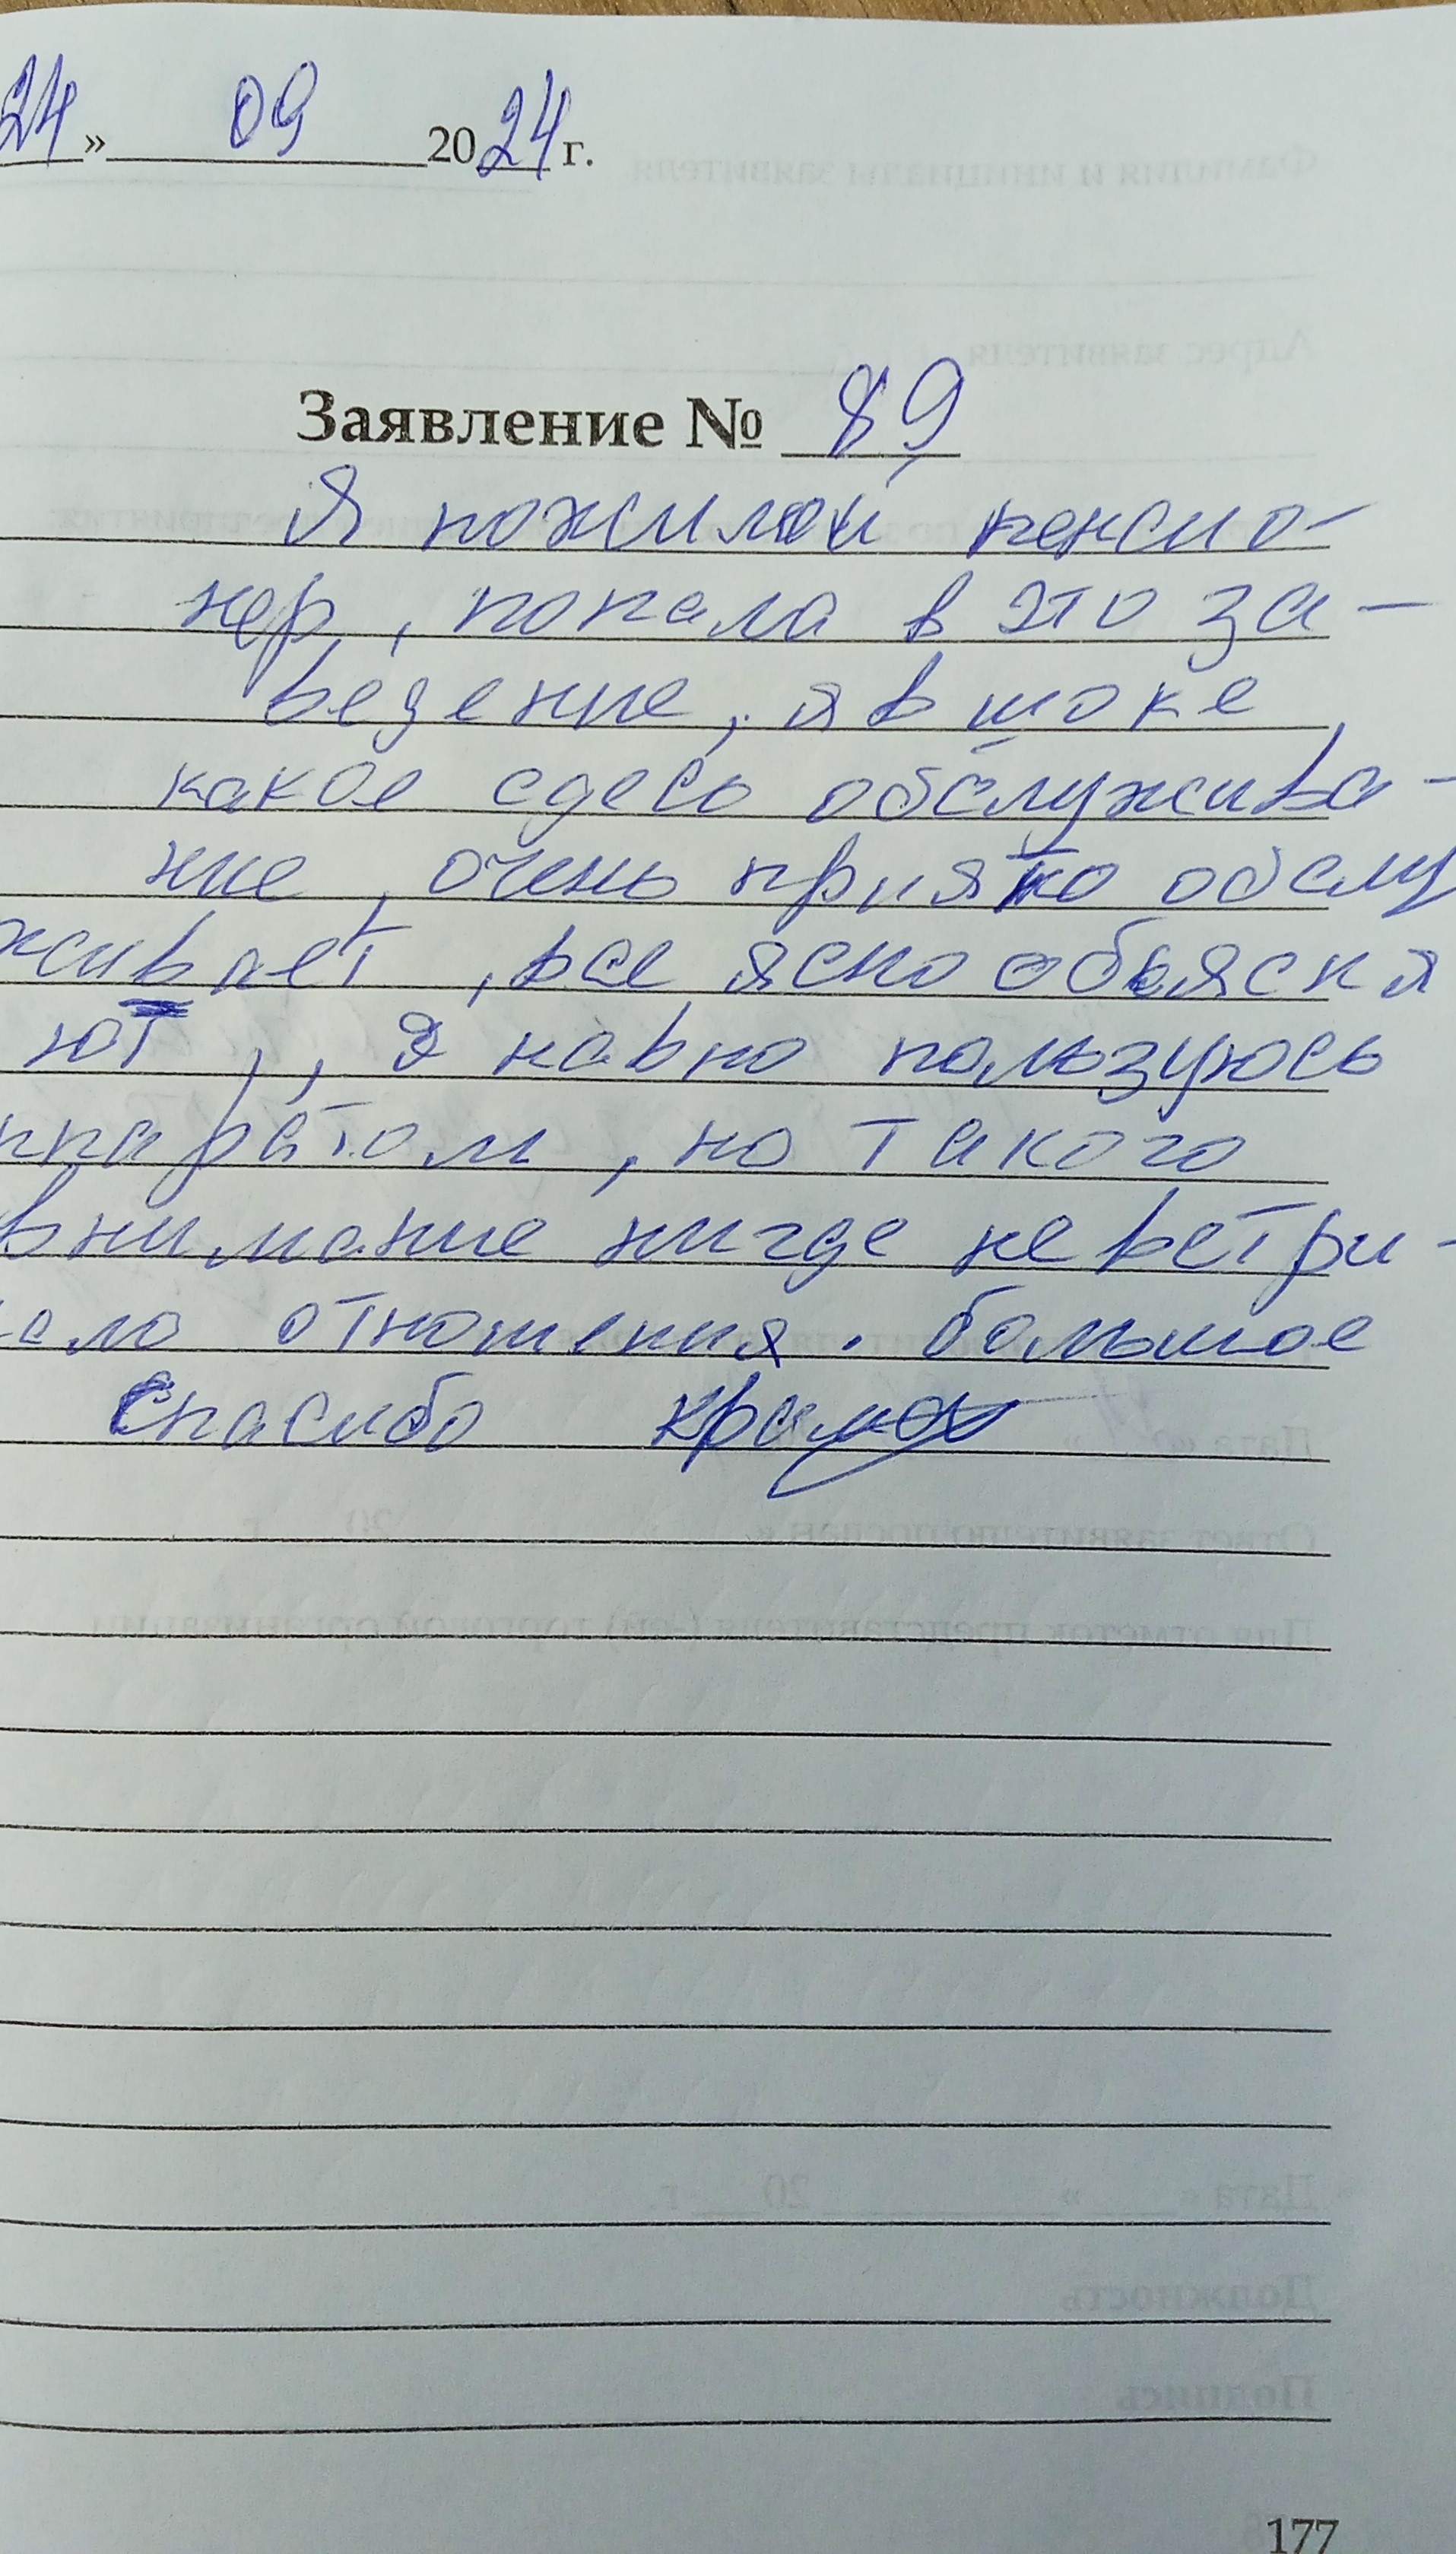 24 » 09 2024 г.
Заявление № 89
Я пожилой пенсио-
нер, попала в это за-
ведение, я в шоке
какое сдесь обслужива-
ние, очень приятно обслу
живает, все ясно обьясня
ют,, я навно пользуюсь
ппаратом, но такого
внимание нигде не ветри-
ело отношения. большое
Спасибо
177